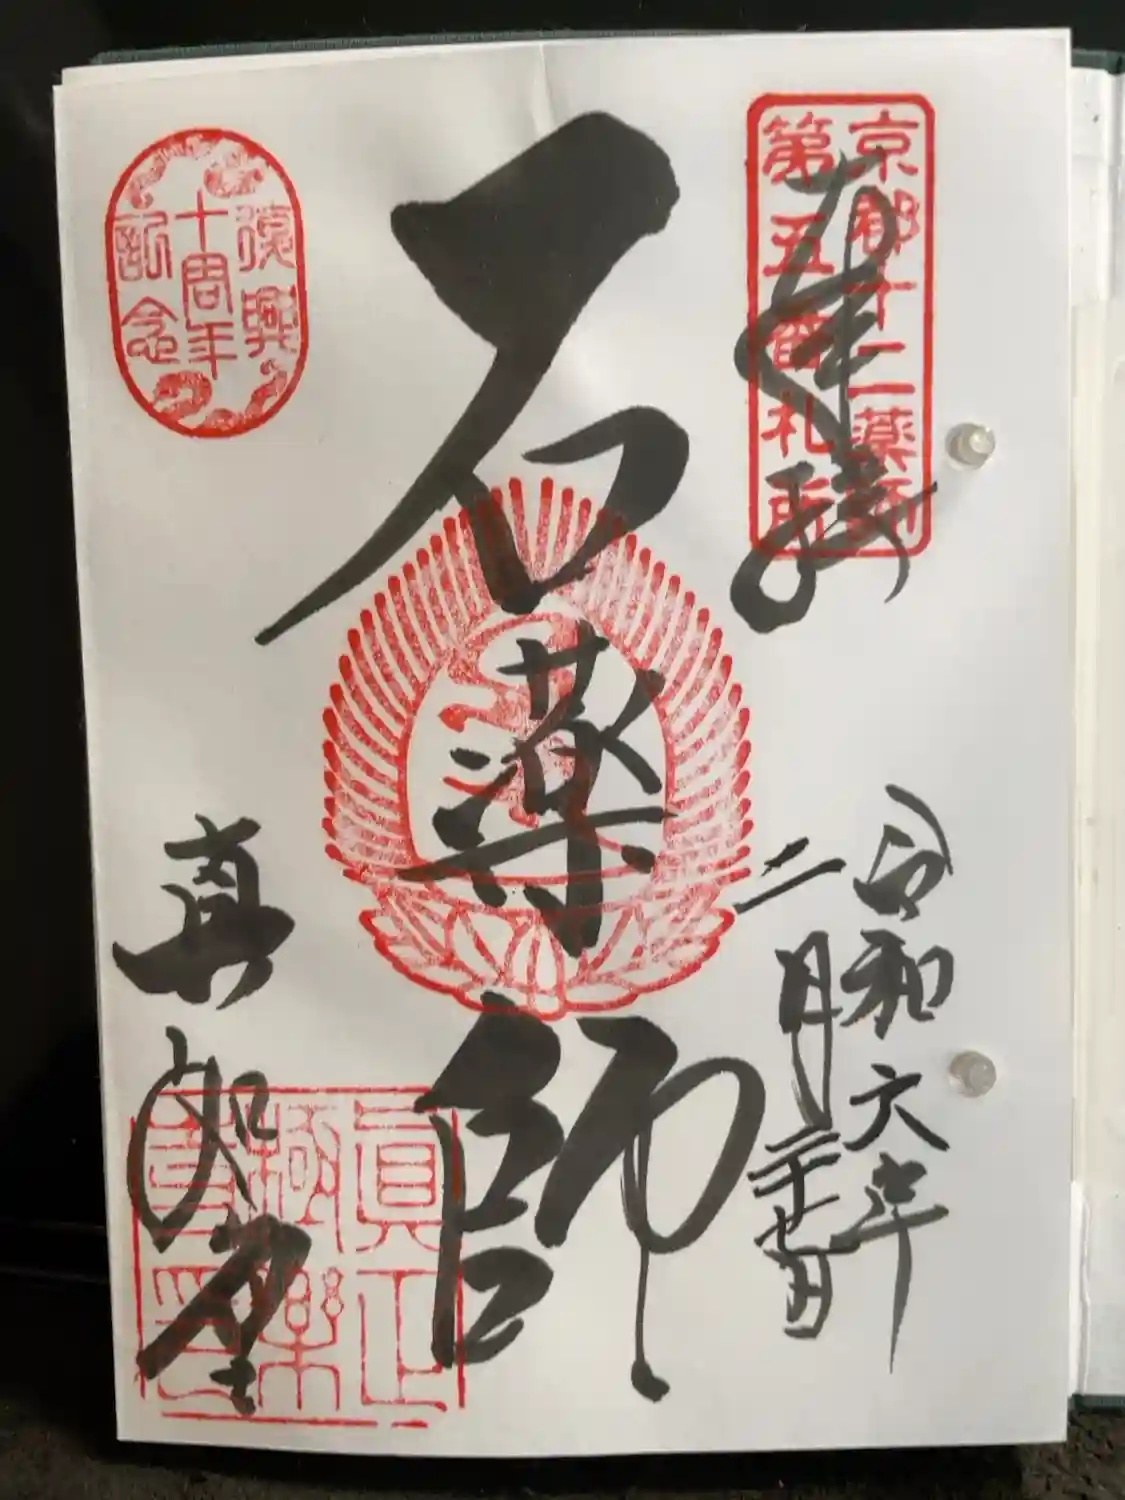 奉拝
京都十二薬師
第五番札所
令和六年
二月二十七日
石薬師
復興
十周年
記念
真如堂
真正
極楽
寺印